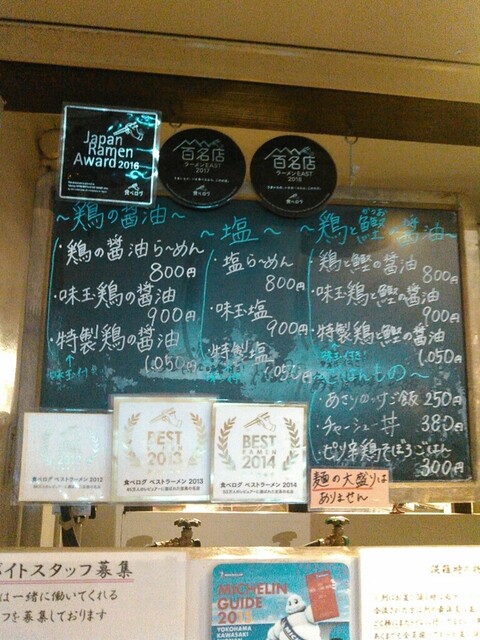 Japan
Ramen
Award 2016
食べログ
百名店
ラーメン EAST
2017
食べログ
百名店
ラーメン EAST
2018
食べログ
~鶏の醤油~
・鶏の醤油らーめん
800円
・味玉鶏の醤油
900円
・特製鶏の醤油
1,050円
味玉付
~塩~
・塩らーめん
800円
・味玉塩
900円
・特製塩
1,050円
~鶏と鰹の醤油~
かつお
鶏と鰹の醤油
800円
・味玉鶏と鰹の醤油
900円
・特製鶏と鰹の醤油
1,050円
味玉付き!
~ごはんもの~
・あさりのっけご飯 250円
・チャーシュー丼 380円
・ピリ辛鶏そぼろごはん
300円
食べログ ベストラーメン 2012
BEST
RAMEN
2013
食べログ ベストラーメン 2013
BEST
RAMEN
2014
食べログ ベストラーメン 2014
麺の大盛りは
ありません
バイトスタッフ募集
は一緒に働いてくれる
フを募集しております
MICHELIN
GUIDE
20
YOKOHAMA
KAWASAKI